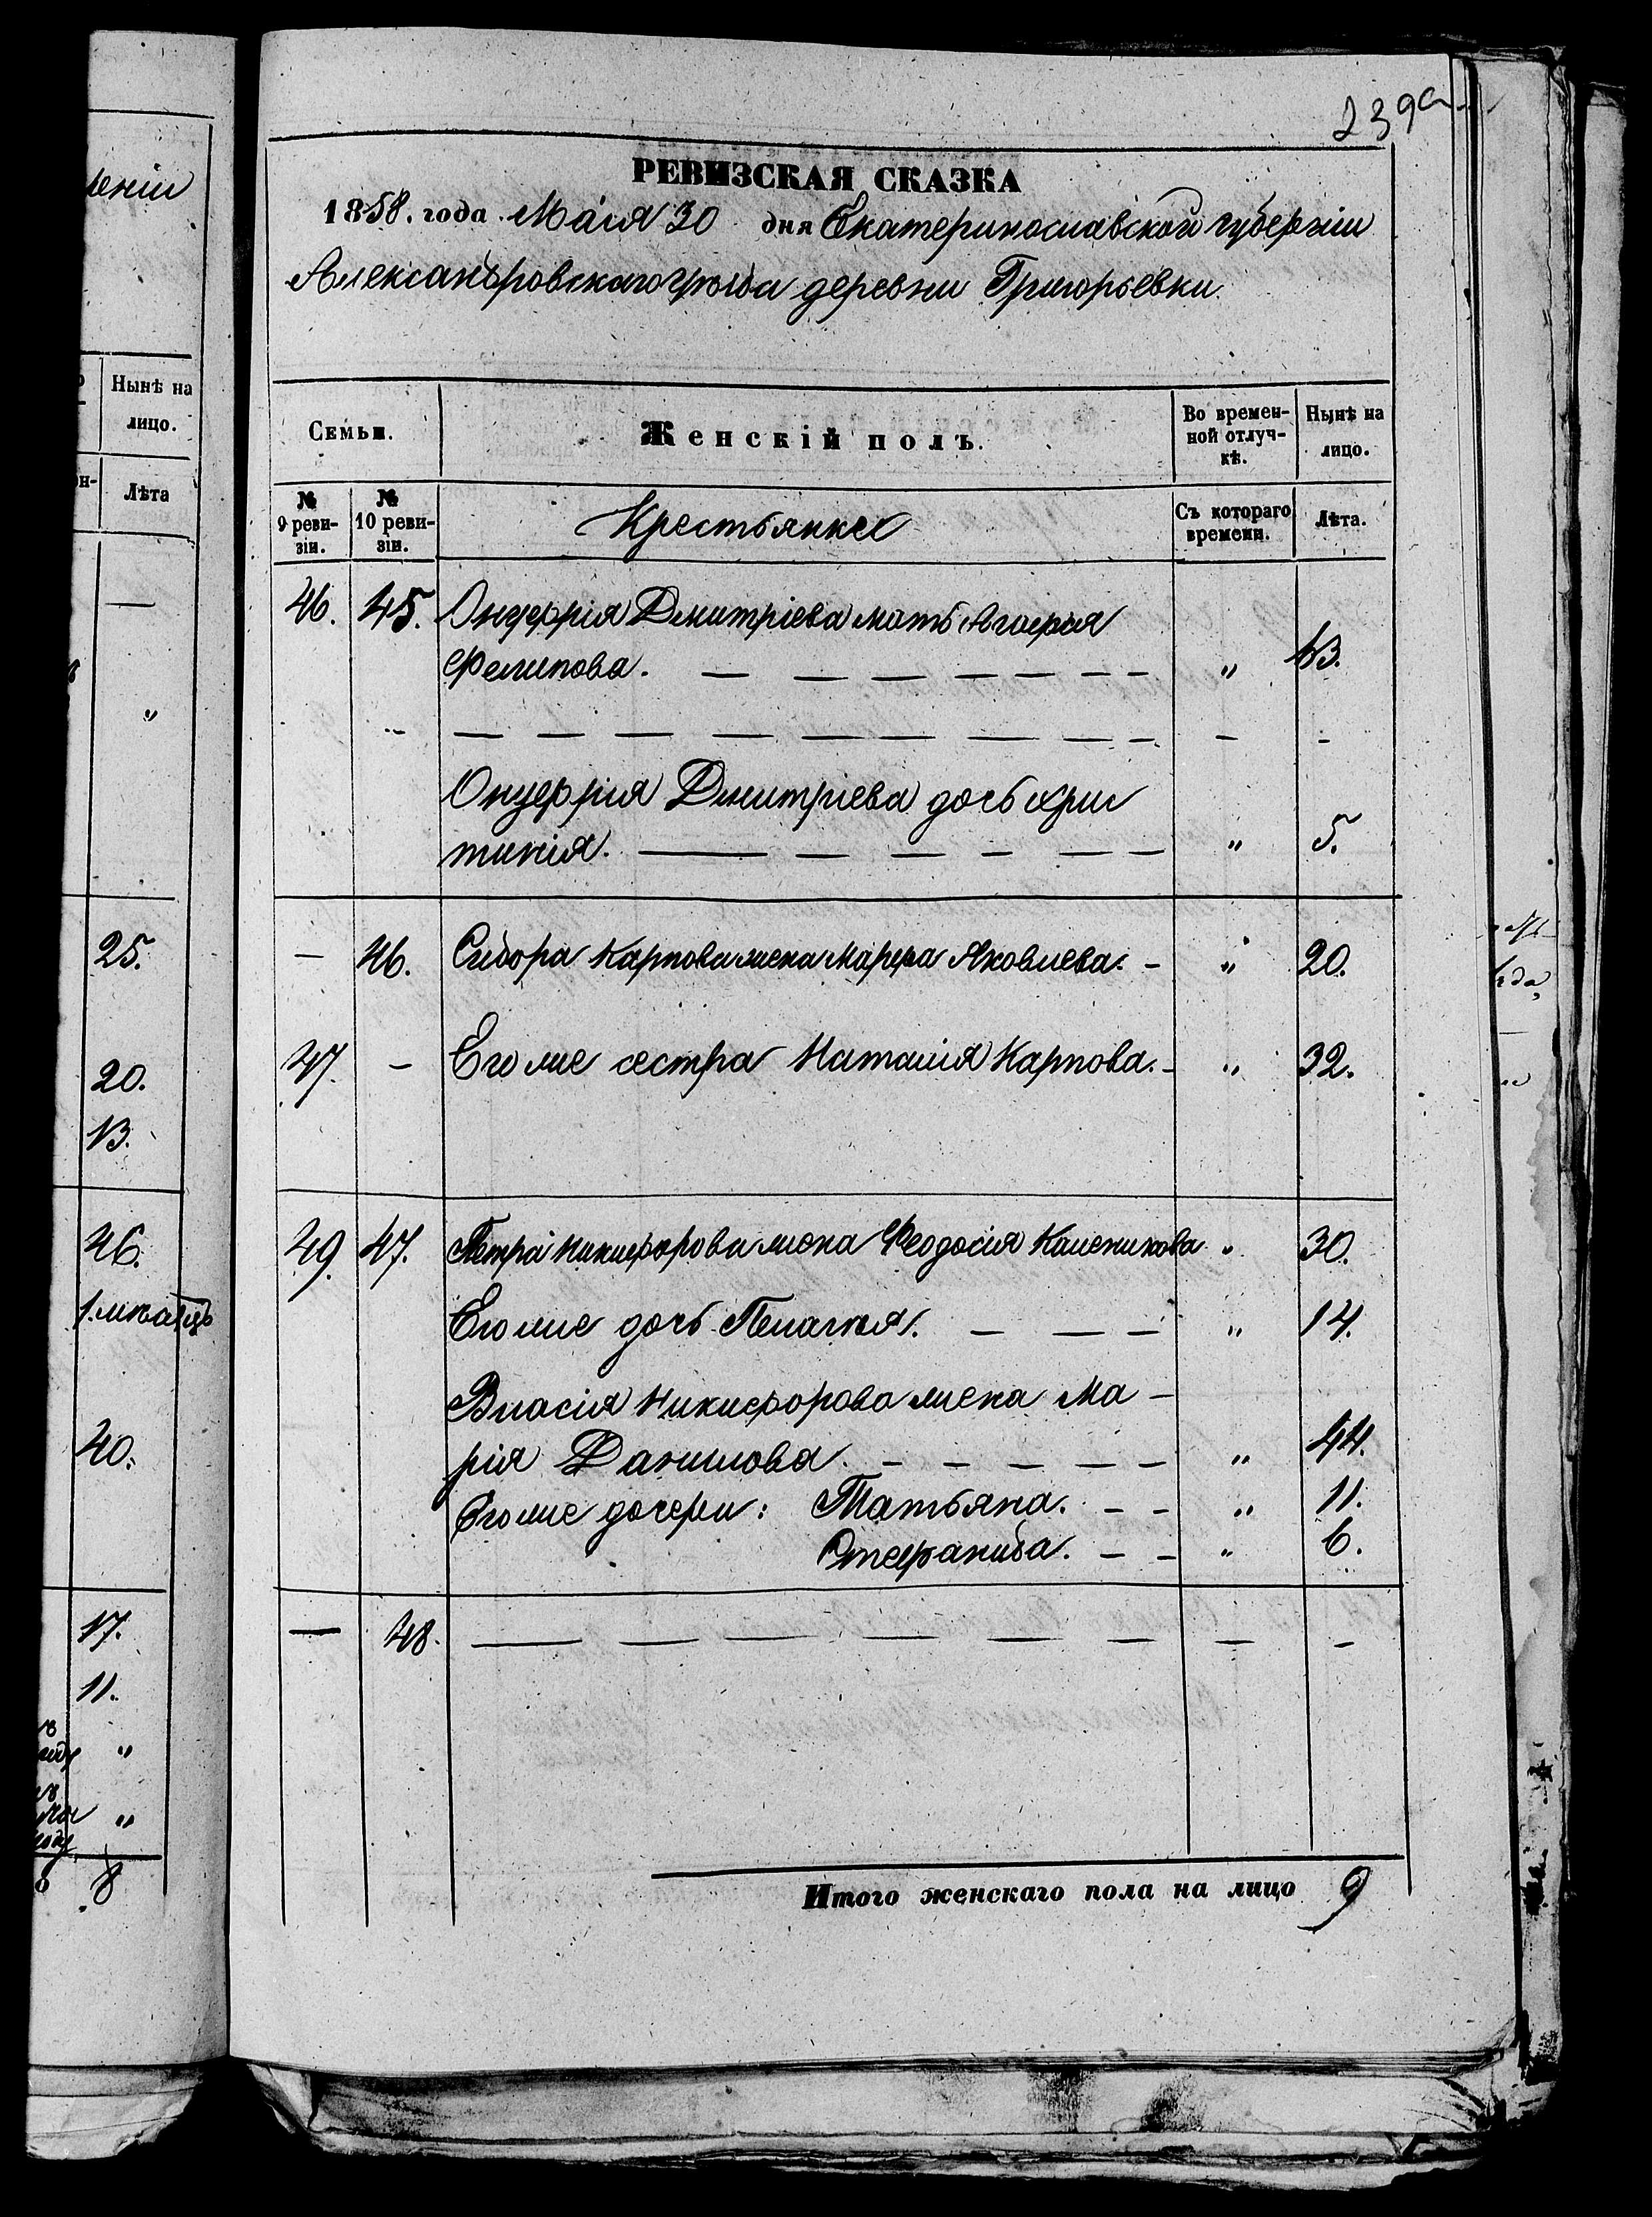 239а
РЕВИЗСКАЯ СКАЗКА
1858. года Маія 30 дня Екатеринославской губерніи
Александровскаго уѣзда деревни Григорьевки.
Семьи. Женскій полъ. Во времен- Нынѣ на
ной отлуч- лицо.
кѣ.
№ 9 реви- зіи. № 10 реви- зіи. Крестьянке Съ котораго времени. Лѣта.
46. 45. Онуфрія Дмитріева мать Агафія
Филипова. — — — — — — „ 63.
— — — — — — — — — —
Онуфрія Дмитріева дочь Хрис
тинія. — — — — — — „ 5.
— 46. Сидора Карпова жена Марфа Яковлева. - „ 20.
47. - Его же сестра Наталія Карпова. - „ 32.
49. 47. Петра Никифорова жена Феодосія Каленикова „ 30.
Его же дочь Пелагія. — — — „ 14.
Власія Никифорова жена Ма-
рія Данилова. — — — — — „ 44.
Его же дочери: Татьяна. — — „ 11.
Стефанида. — — „ 6.
— 48. — — — — — — — — -
Итого женскаго пола на лицо 9
леніи
Нынѣ на
лицо.
Лѣта
—
„
25.
20.
13.
46.
40.
17.
11.
„
„
8